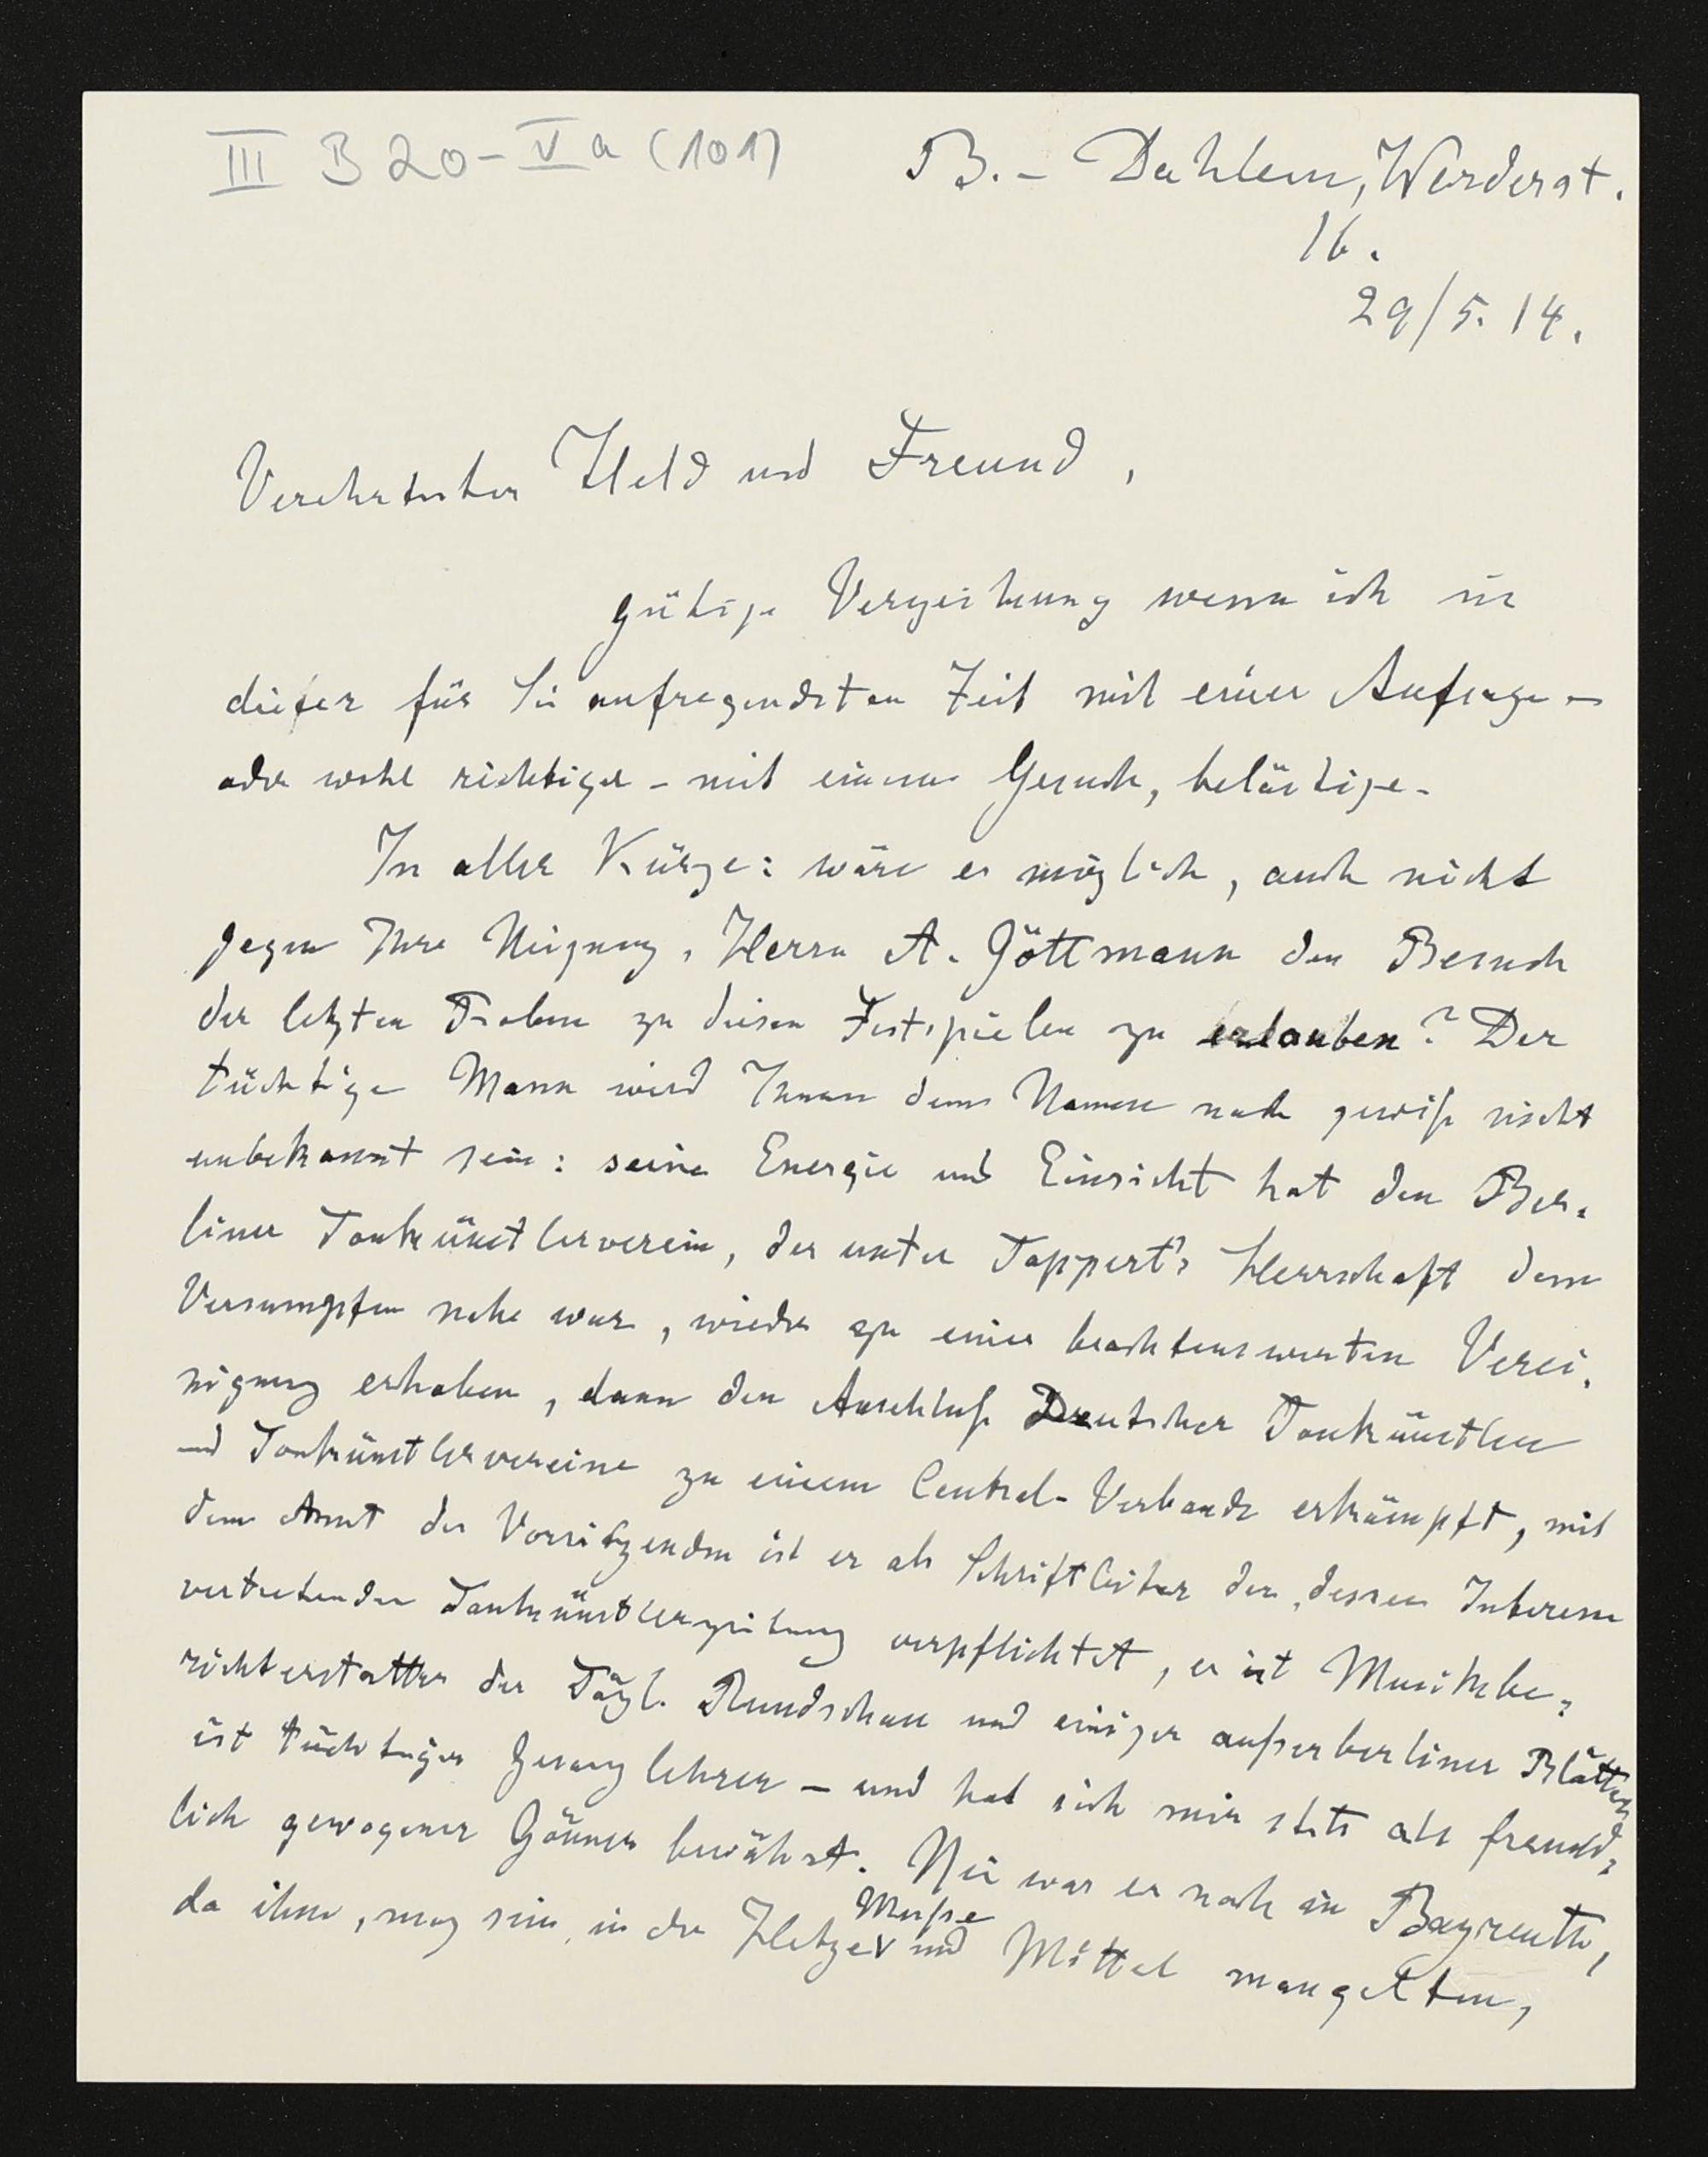 III B 20-Va (101)
B.- Dahlem, Werderst.
16.
29/5. 14.
Verehrtester Held und Freund,
gütige Verzeihung wenn ich in
dieser für Sie aufregendsten Zeit mit einer Anfrage -
oder wohl richtiger - mit einem Gesuch, belästige.
In aller Kürze: wäre es möglich, auch nicht
gegen Ihre Neigung, Herrn A. Göttmann den Besuch
der letzten Proben zu diesen Festspielen zu erlauben? Der
tüchtige Mann wird Ihnen dem Namen nach gewiß nicht
unbekannt sein: seine Energie und Einsicht hat den Ber-
liner Tonkünstlerverein, der unter Tappert's Herrschaft dem
Versumpfen nahe war, wieder zu einer beachtenswerten Verei-
nigung erhoben, dann den Anschluß Deutscher Tonkünstler
und Tonkünstlervereine zu einem Central-Verbande erkämpft, mit
dem Amt des Vorsitzenden ist er als Schriftleiter der, dessen Interesse
vertretenden Tonkünstlerzeitung verpflichtet, er ist Musikbe-
richterstatter der Tägl. Rundschau und einiger außerberliner Blätter,
ist tüchtiger Gesanglehrer - und hat sich mir stets als freund-
lich gewogener Gönner bewährt. Nie war er noch in Bayreuth,
da ihm, mag sein, in der Hetze Muße und Mittel mangelten,